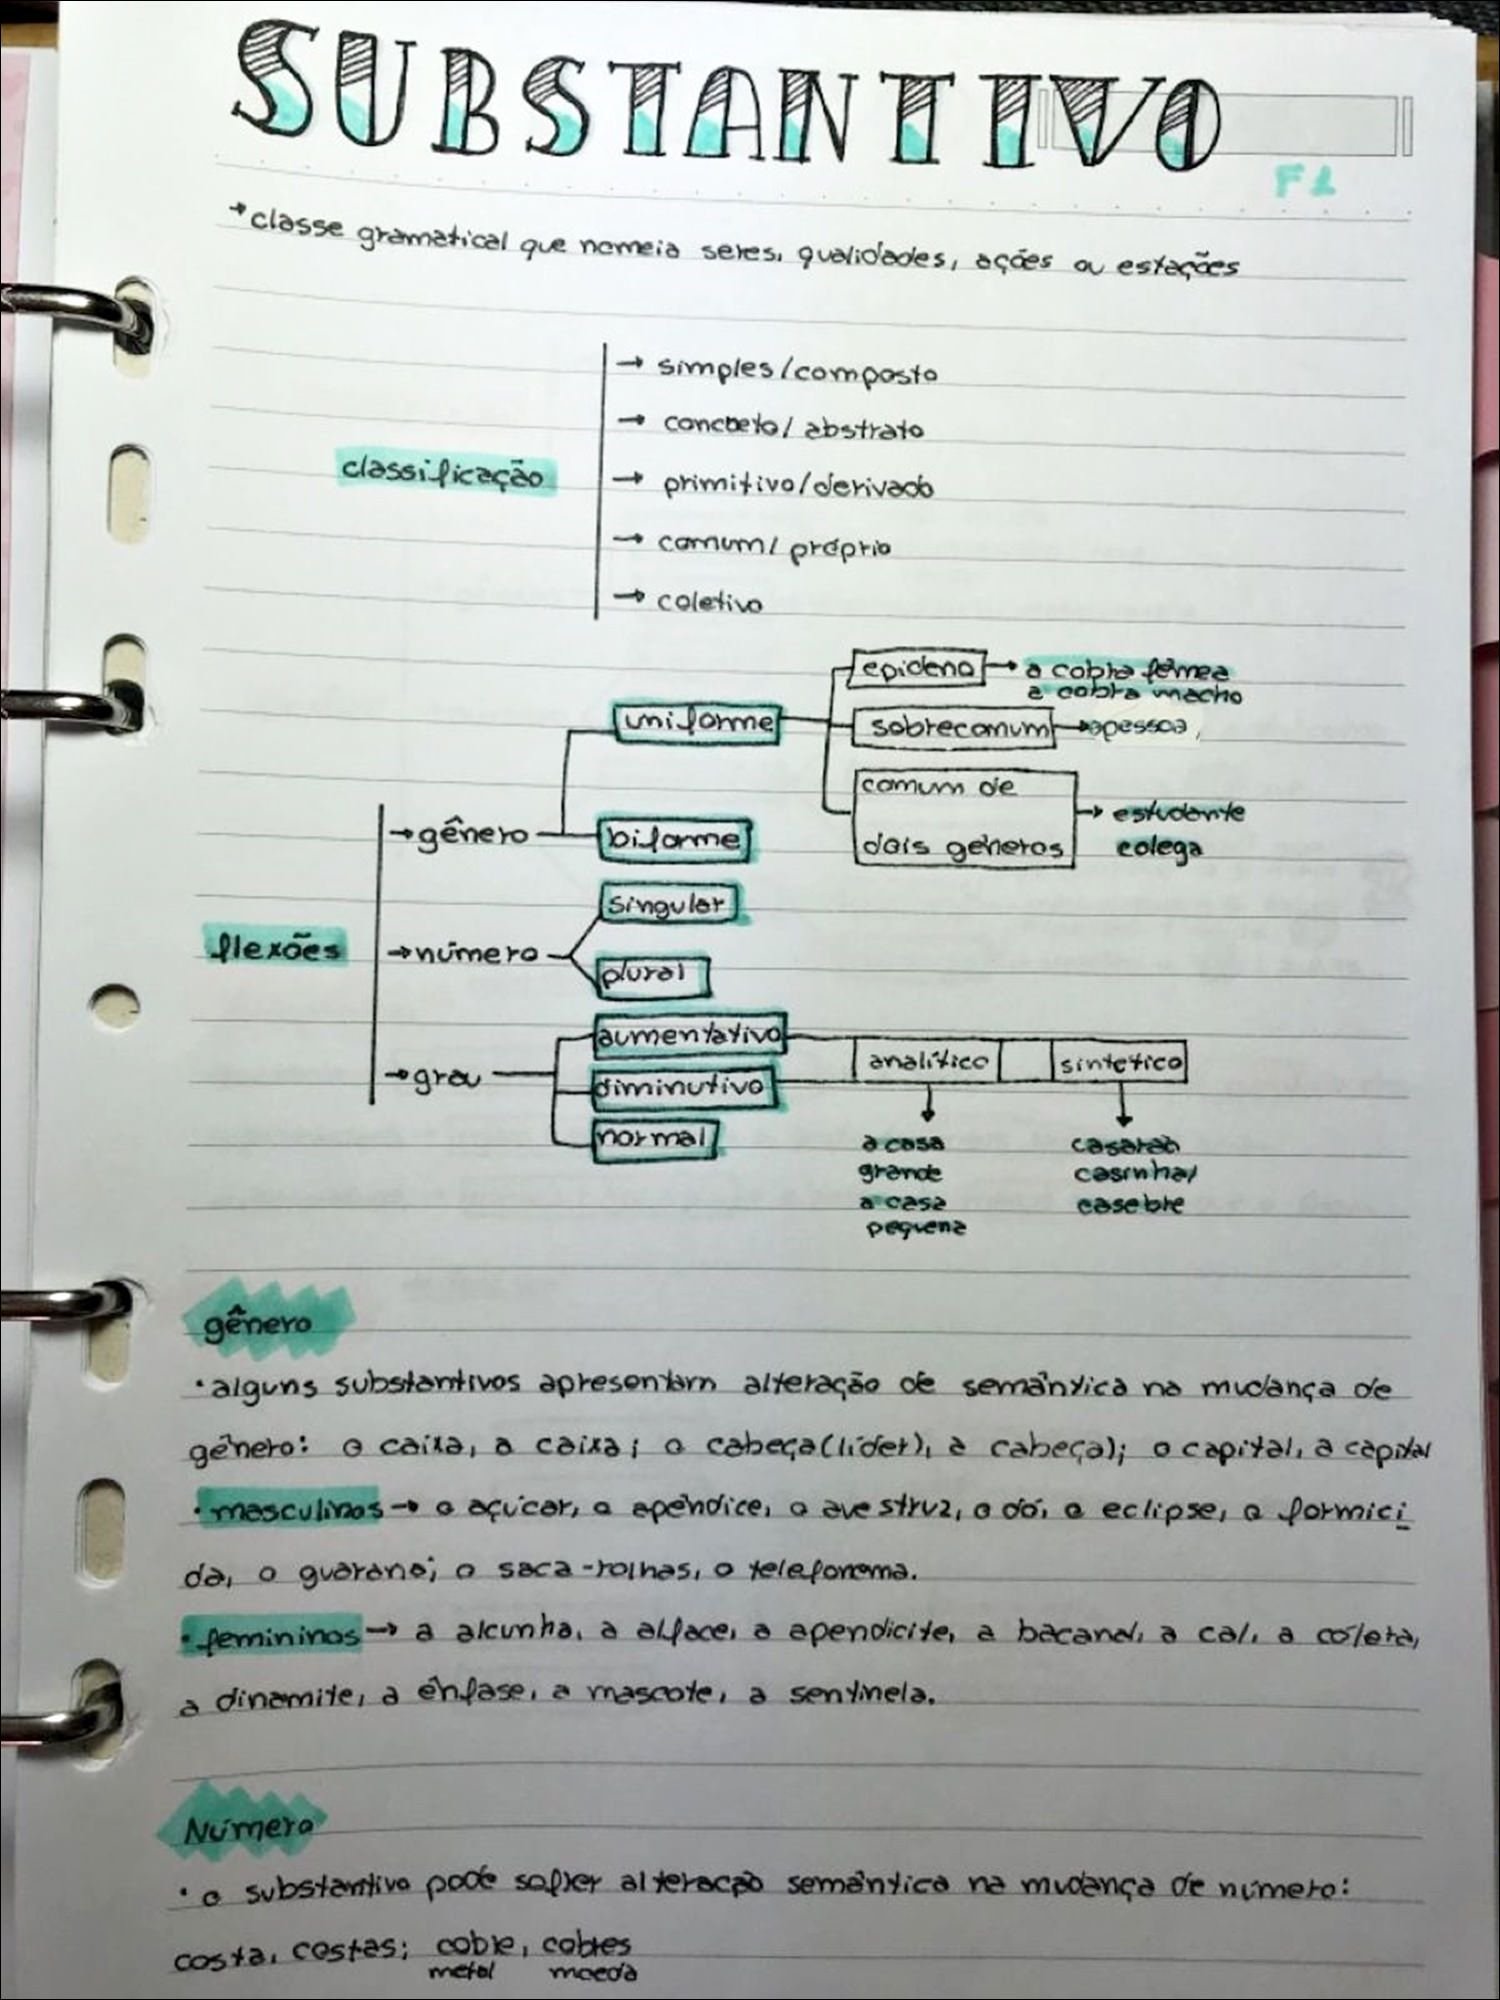 SUBSTANTIVO
F1
→ classe gramatical que nomeia seres, qualidades, ações ou estações
classificação
→ simples/composto
→ concreto/abstrato
→ primitivo/derivado
→ comum/próprio
→ coletivo
flexões
→ gênero
uniforme
epiceno → a cobra fêmea
a cobra macho
sobrecomum → a pessoa,
comum de
dois gêneros
→ estudante
colega
biforme
→ número
singular
plural
→ grau
aumentativo
diminutivo
normal
analítico
sintético
a casa
grande
a casa
pequena
casarão
casinha/
casebre
gênero
• alguns substantivos apresentam alteração de semântica na mudança de
gênero: o caixa, a caixa; o cabeça (líder), a cabeça); o capital, a capital
• masculinos → o açúcar, o apêndice, o avestruz, o dó, o eclipse, o formici
da, o guaraná; o saca-rolhas, o telefonema.
• femininos → a alcunha, a alface, a apendicite, a bacanal, a cal, a cólera,
a dinamite, a ênfase, a mascote, a sentinela.
Número
• o substantivo pode sofrer alteração semântica na mudança de número:
costa, costas; cobre, cobres
metal moeda